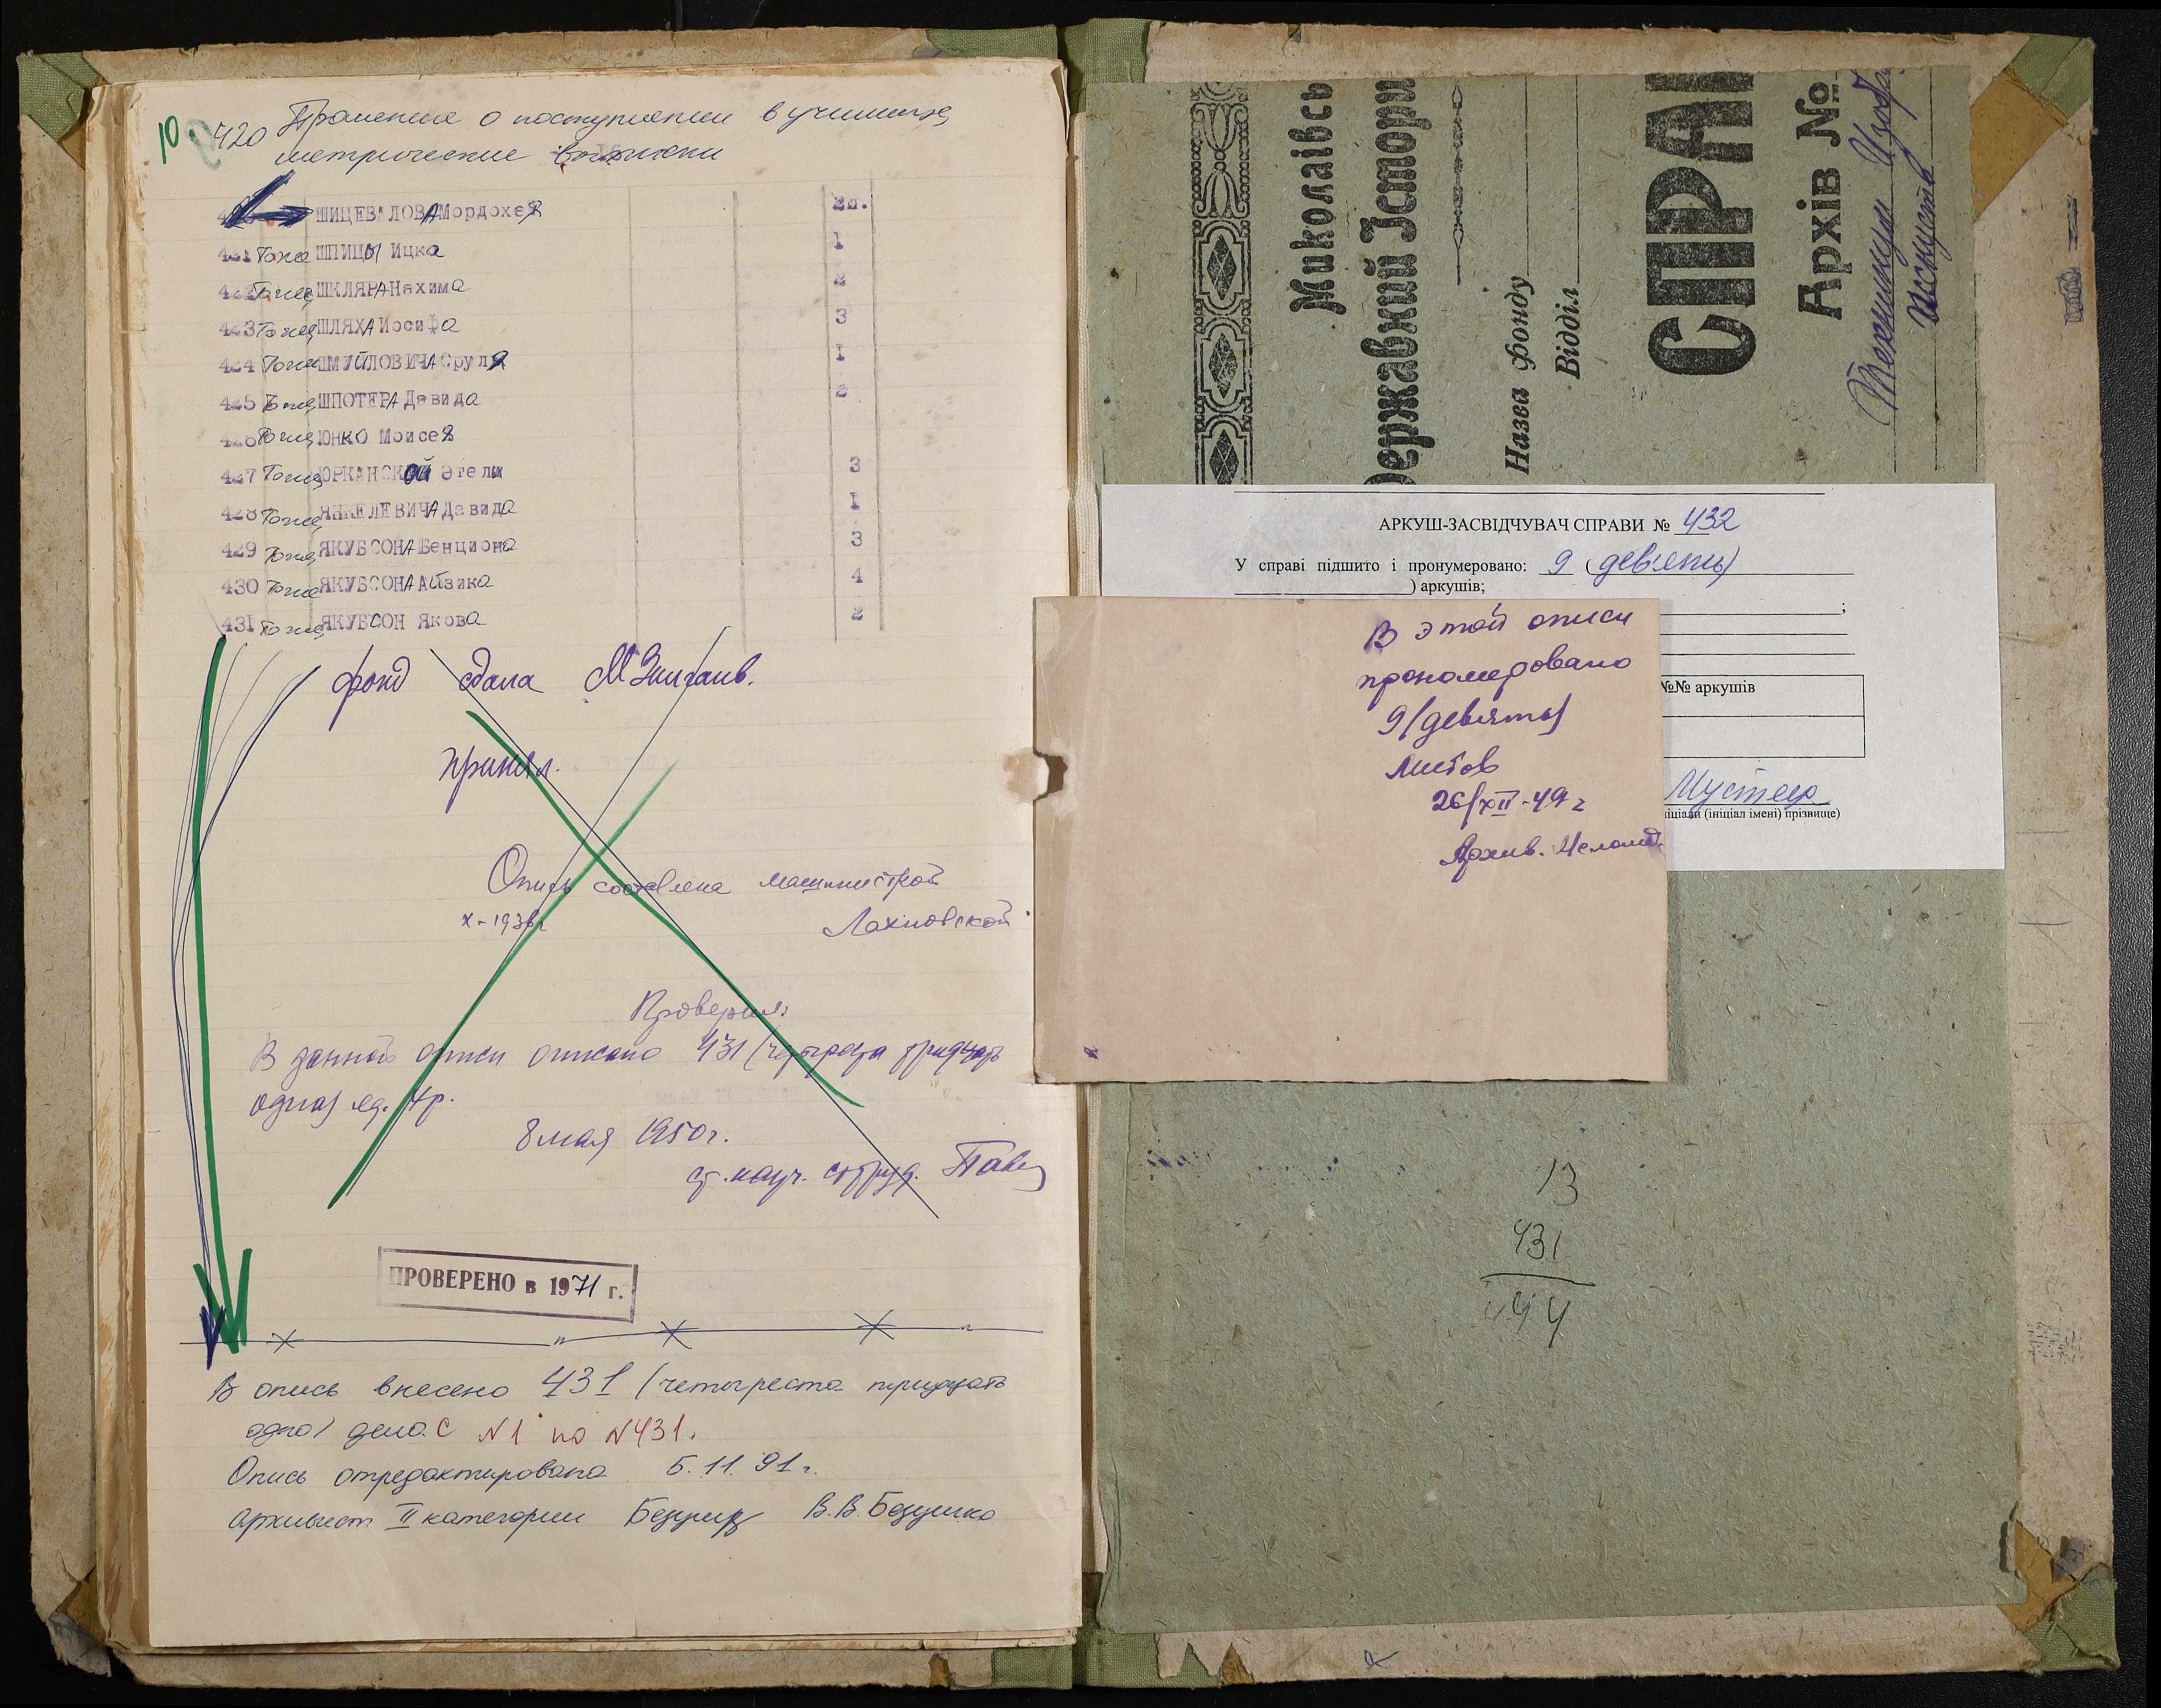 10.
420 Прошение о поступлении в училище,
метрические выписки
ШИЦЕВАЛОВА Мордохея 2л.
421 Тоже ШПИЦЫ Ицка 1
422 Тоже ШКЛЯРА Нахима 2
423 Тоже ШЛЯХА Иосифа 3
424 Тоже ШМУЙЛОВИЧА Сруля I
425 Тоже ШПОТЕРА Давида 2
426 Тоже ЮНКО Моисея
427 Тоже ЮРКАНСКОЙ Этели 3
428 Тоже ЯНКЕЛЕВИЧА Давида I
429 Тоже ЯКУБСОНА Бенциона 3
430 Тоже ЯКУБСОНА Айзика 4
431 Тоже ЯКУБСОН Якова 2
фонд сдала
Принял.
Опись составлена машинисткой
Х-1938г Лахновской
Проверил:
В данной описи описано 431 (четыреста тридцать
одна) ед. хр.
8 мая 1950г.
ст. науч. сотруд.
ПРОВЕРЕНО в 1971 г.
В опись внесено 431 (четыреста тридцать
одно) дело. С №1 по №431.
Опись отредактирована 5.11.91г.
Архивист II категории В.В. Безушко
Миколаївсь
Державний Істори
Назва фонду
Відділ
СПРА
Архів №
Технікум Изобр.
искусств
АРКУШ-ЗАСВІДЧУВАЧ СПРАВИ № 432
У справі підшито і пронумеровано: 9 (дев'ять)
) аркушів;
;
№№ аркушів
(ініціал імені) прізвище)
В этой описи
прономеровано
9 (девять)
листов
26/XII-49 г
Архив.
13
431
444